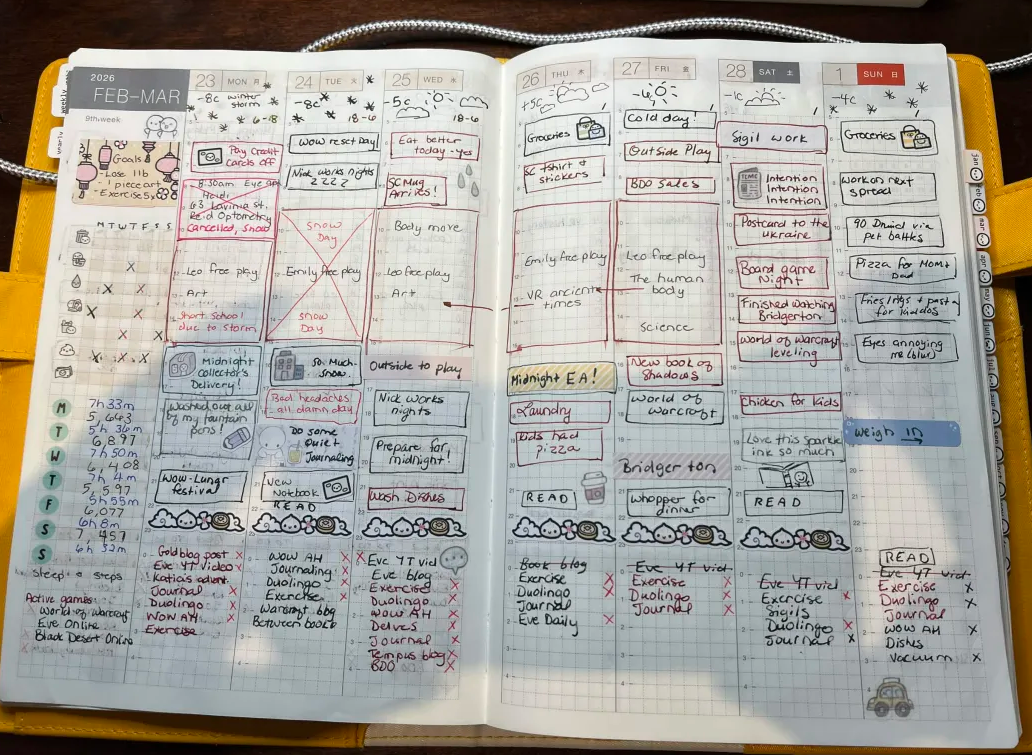 2026
FEB-MAR
9th week
Goals
-Lose 1lb
-1 piece art
-Exercise 5x
M T W T F S S
M
7h 33m
5,663
T
5h 36m
6,897
W
7h 50m
6,408
T
7h 4m
5,597
F
5h 55m
6,077
S
6h 8m
7,457
S
6h 32m
Sleep + steps
Active games:
World of warcraft
Eve Online
Black Desert Online
23 MON 月
-8c winter
storm
6-18
Pay Credit
Cards off
8:30am Eye ap
Heidi
63 Lavinia st.
Reid Optometry
Cancelled, Snow
Leo free play
Art
Short School
due to storm
Midnight
collector's
Delivery!
Washed out all
of my fountain
pens!
WOW-Lunar
festival
Gold blog post x
Eve YT video x
Katia's advent.
Journal x
Duolingo x
WOW AH x
Exercise
24 TUE 火
-8c
18-6
WOW reset Day
Nick works nights
ZZZZ
SNOW
DAY
Emily free play
SNOW
DAY
So much
snow.
Bad headaches
all damn day
Do some
Quiet
Journaling
New
Notebook
READ
WOW AH x
Journaling
Duolingo x
Exercise x
Warcraft blog
Between books
25 WED 水
-5c
18-6
Eat better
today -yes
SC Mug
Arrives!
Body move
Leo free play
Art
Outside to play
Nick works
nights
Prepare for
midnight!
Wash Dishes
x Eve YT vid
Eve blog
Exercise x
Duolingo x
WOW AH x
Delves x
Journal x
Tempus blog x
BDO x
26 THU 木
+5c
Groceries
SC tshirt +
stickers
Emily free play
VR ancient
times
Midnight EA!
Laundry
Kids had
pizza
READ
Book blog
Exercise x
Duolingo x
Journal
Eve Daily x
27 FRI 金
-6
Cold day!
Outside Play
BDO Sales
Leo free play
The human
body
Science
New book of
Shadows
World of
warcraft
Bridgerton
Whopper for
dinner
Eve YT vid
Exercise x
Duolingo x
Journal x
28 SAT 土
-1c
Sigil work
Intention
Intention
Intention
Postcard to the
Ukraine
Board game
Night
Finished watching
Bridgerton
World of warcraft
leveling
Chicken for kids
Love this sparkle
ink so much
READ
Eve YT vid
Exercise x
Sigils
Duolingo x
Journal x
1 SUN 日
-4c
Groceries
Work on next
spread
90 Druid via
pet battles
Pizza for Mom +
Dad
Eyes annoying
me (blur)
weigh in
READ
Eve YT vid
Exercise x
Duolingo x
Journal
WOW AH x
Dishes
Vacuum x